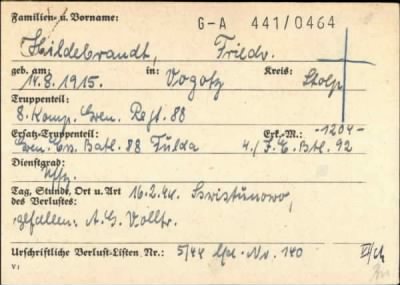 Familien- u. Vorname: G-A 441/0464
Hildebrandt, Friedr.
geb. am: in: Kreis:
14.8.1915. Vogotz Stolp
Truppenteil:
8. Komp. Gren. Regt. 88
Ersatz-Truppenteil: Erk.-M.: -1204-
Gren. Ers. Batl. 88 Fulda 4./J.E.Btl. 92
Dienstgrad:
Uffz.
Tag, Stunde, Ort u. Art 16.2.44. Swistunowo,
des Verlustes:
gefallen: A.G. Volltr.
Urschriftliche Verlust-Listen Nr.: 5/44 lfd. Nr. 140
V 1